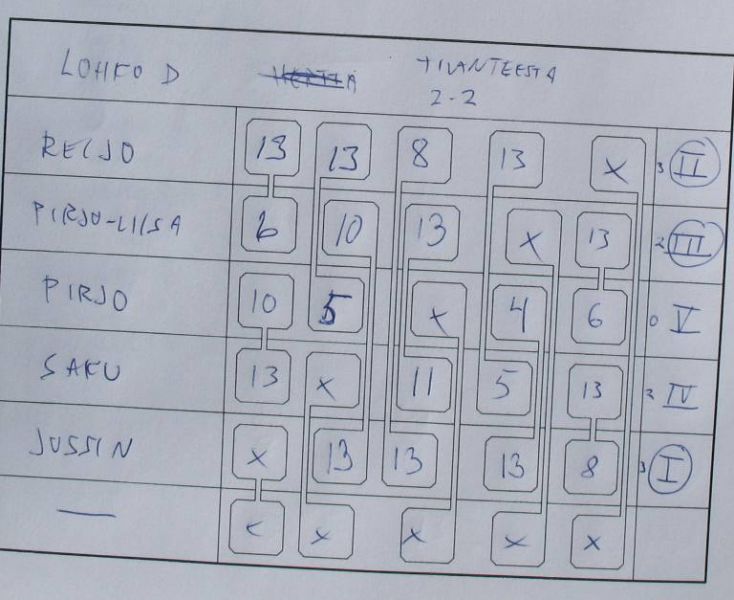 LOHKO D TILANTEESTA
2-2
REIJO 13 13 8 13 x 3 II
PIRJO-LIISA 6 10 13 x 13 2 III
PIRJO 10 5 x 4 6 0 V
SAKU 13 x 11 5 13 2 IV
JUSSIN x 13 13 13 8 3 I
— x x x x x